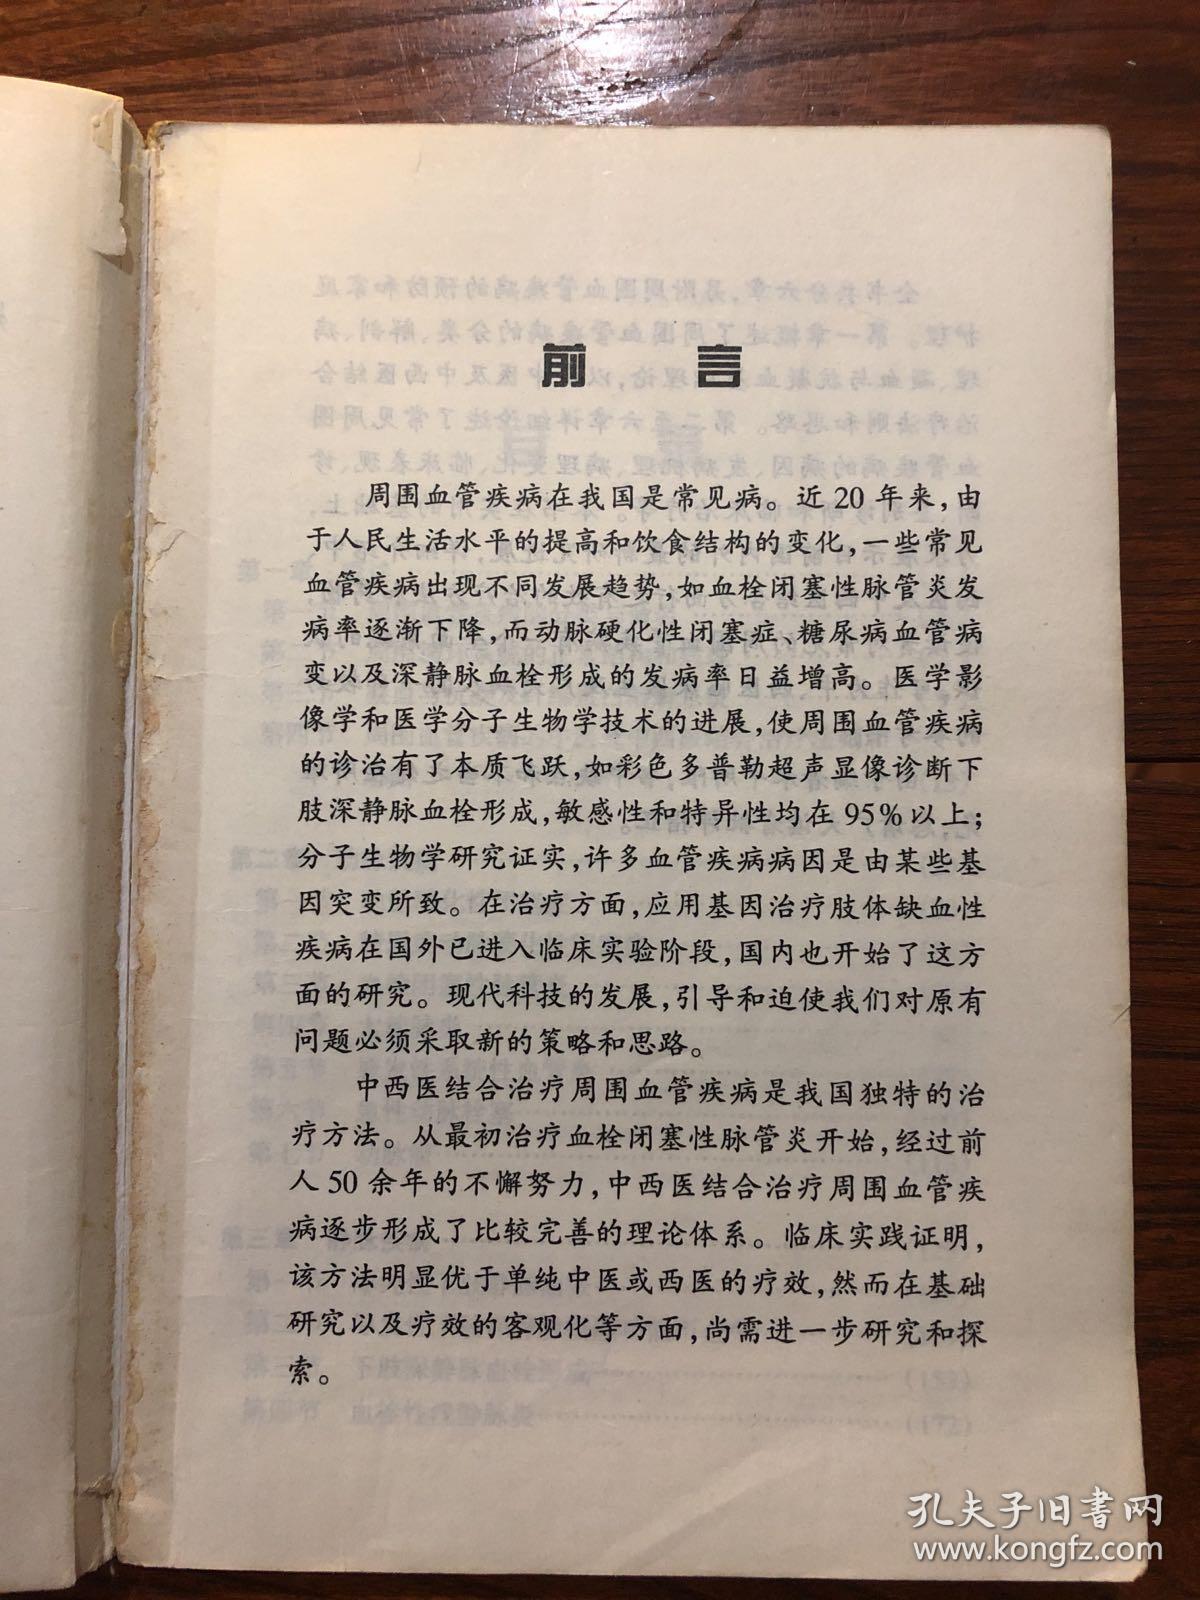 前言
周围血管疾病在我国是常见病。近20年来,由
于人民生活水平的提高和饮食结构的变化,一些常见
血管疾病出现不同发展趋势,如血栓闭塞性脉管炎发
病率逐渐下降,而动脉硬化性闭塞症、糖尿病血管病
变以及深静脉血栓形成的发病率日益增高。医学影
像学和医学分子生物学技术的进展,使周围血管疾病
的诊治有了本质飞跃,如彩色多普勒超声显像诊断下
肢深静脉血栓形成,敏感性和特异性均在95%以上;
分子生物学研究证实,许多血管疾病病因是由某些基
因突变所致。在治疗方面,应用基因治疗肢体缺血性
疾病在国外已进入临床实验阶段,国内也开始了这方
面的研究。现代科技的发展,引导和迫使我们对原有
问题必须采取新的策略和思路。
中西医结合治疗周围血管疾病是我国独特的治
疗方法。从最初治疗血栓闭塞性脉管炎开始,经过前
人50余年的不懈努力,中西医结合治疗周围血管疾
病逐步形成了比较完善的理论体系。临床实践证明,
该方法明显优于单纯中医或西医的疗效,然而在基础
研究以及疗效的客观化等方面,尚需进一步研究和探
索。
孔夫子旧书网
www.kongfz.com